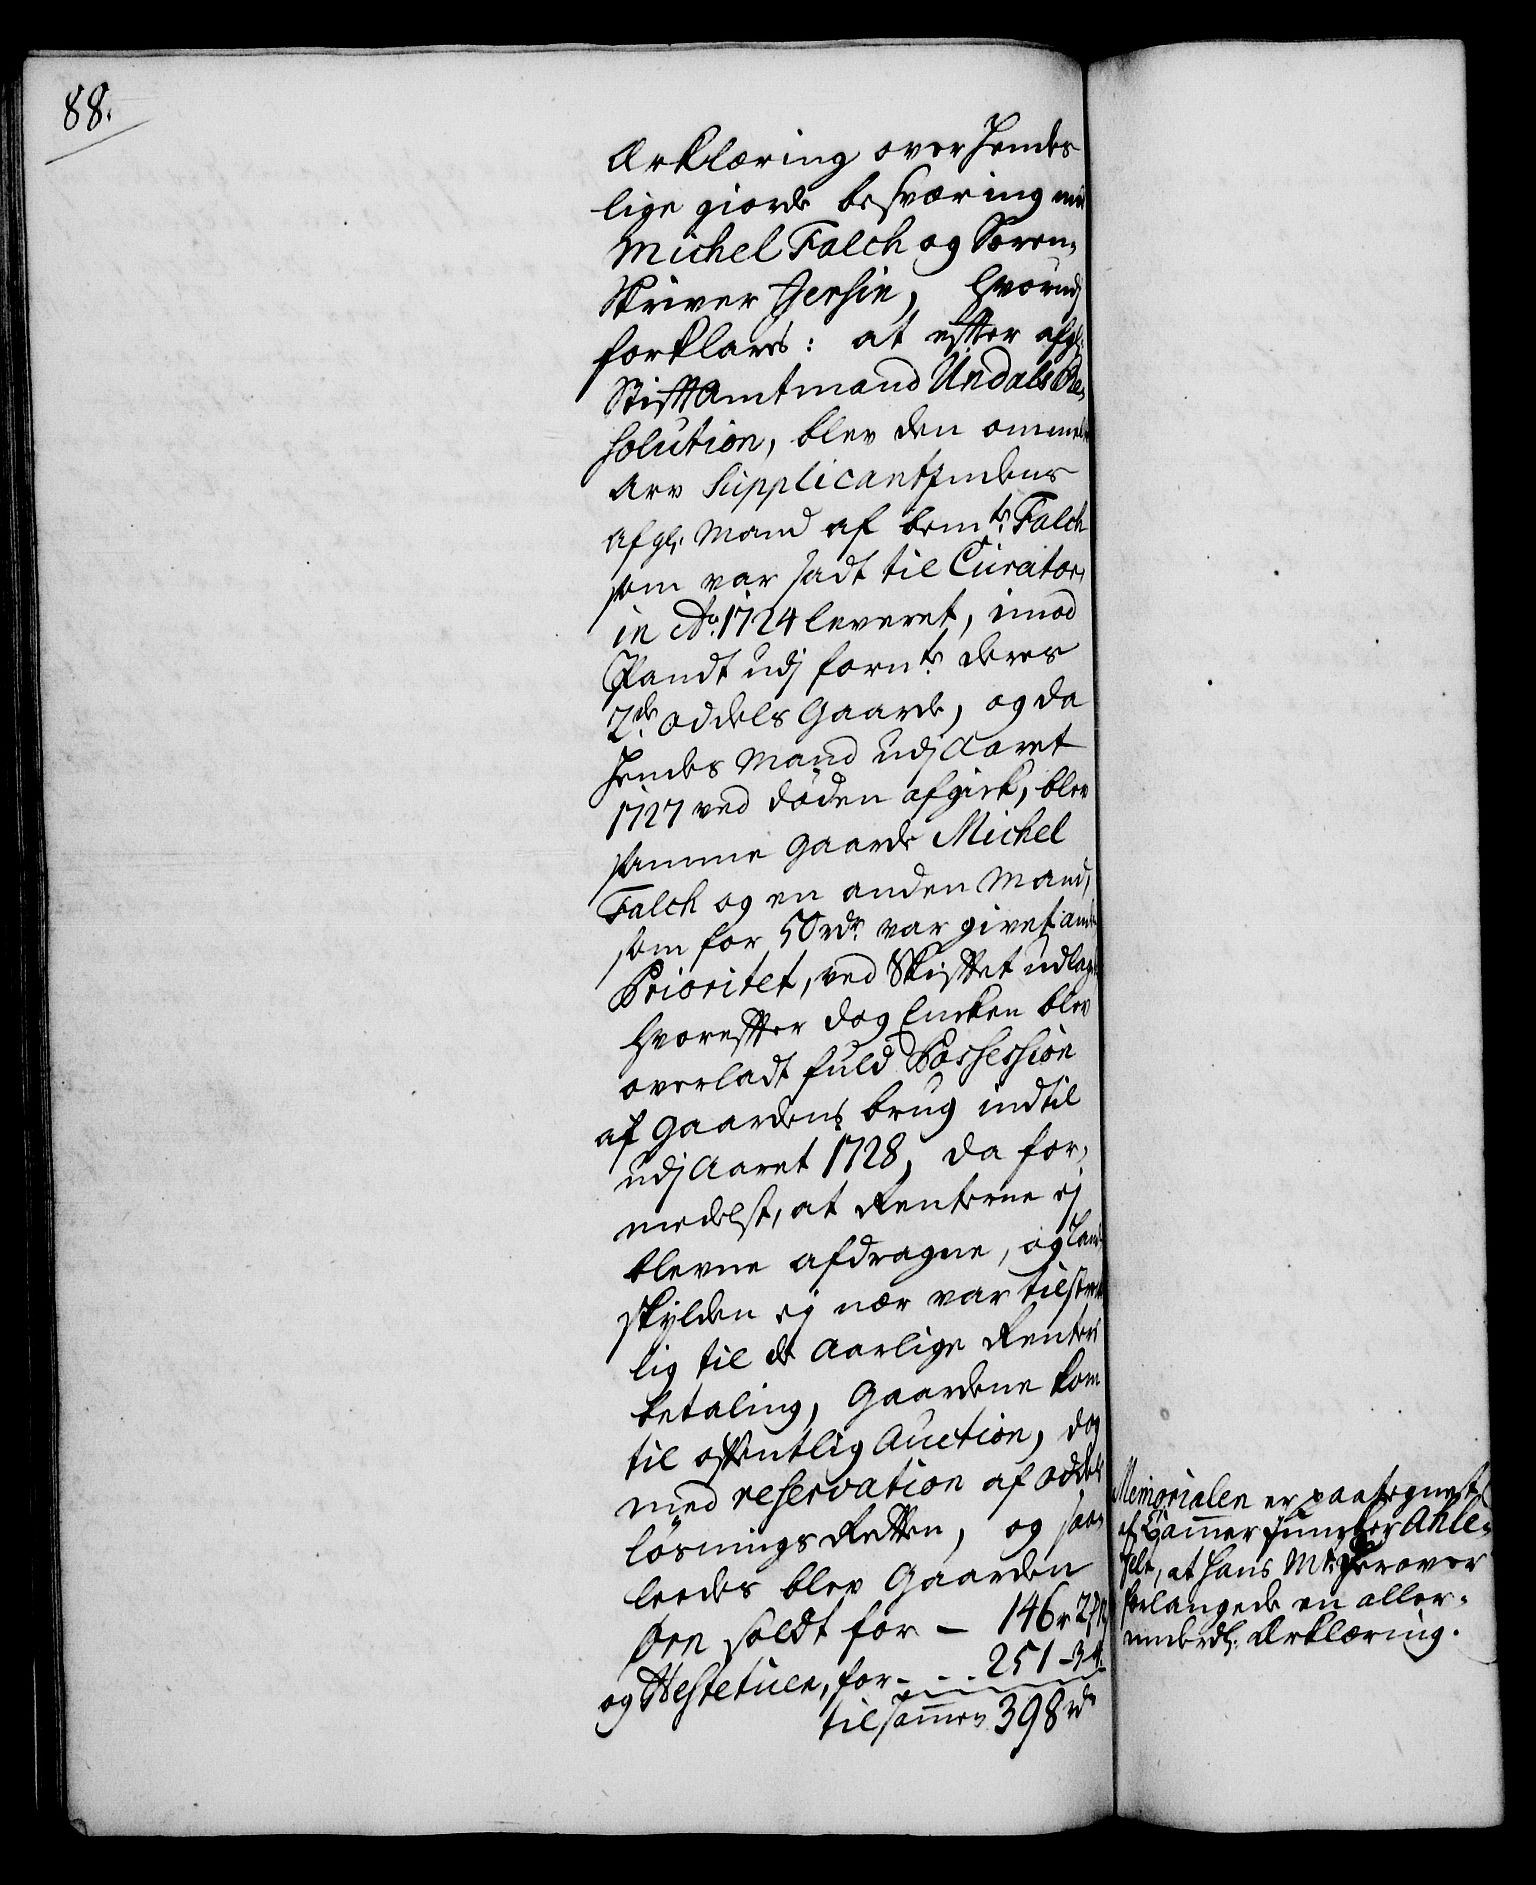 88.
Erklæring over Hendes
lige giorde besværing
Michel Falch og Soren-
skriver Jersin, hvorudj
forklares: at efter afgl:
Stiftamtmand Undals Re-
solution, blev den ommelte
Arv Supplicantindens
afgl: Mand af bemte: Falch
som var sadt til Curator,
in Ao: 1724 leveret, imod
Pandt udj fornte: deres
2de: Oddels Gaarde, og da
Hendes Mand udj Aaret
1727 ved døden afgick, blev
samme Gaarde Michel
Falch og en anden Mand,
som for 50 rdr: var givet anden
Prioritet, ved Skiftet udlagt
hvorefter dog Encken blev
overladt fuld Possession
af Gaardens brug indtil
udj Aaret 1728, da for-
medelst, at Renterne ej
blevne afdragne, og Land-
skylden ej nær var tilstrek-
lig til de Aarlige Renters
betaling, Gaardene kom
til offentlig Auction, dog
med reservation af Oddels
løsnings Retten, og saa-
leedes blev Gaarden
Øen soldt for – 146 r 2
og Hestetuen, for - . . . 251 - 3
tilsammen 398 rdr
Memorialen er paategnet
af Cammer Juncker Ahle-
felt, at Hans Mt: herover
forlangede en aller-
underdl: Erklæring.